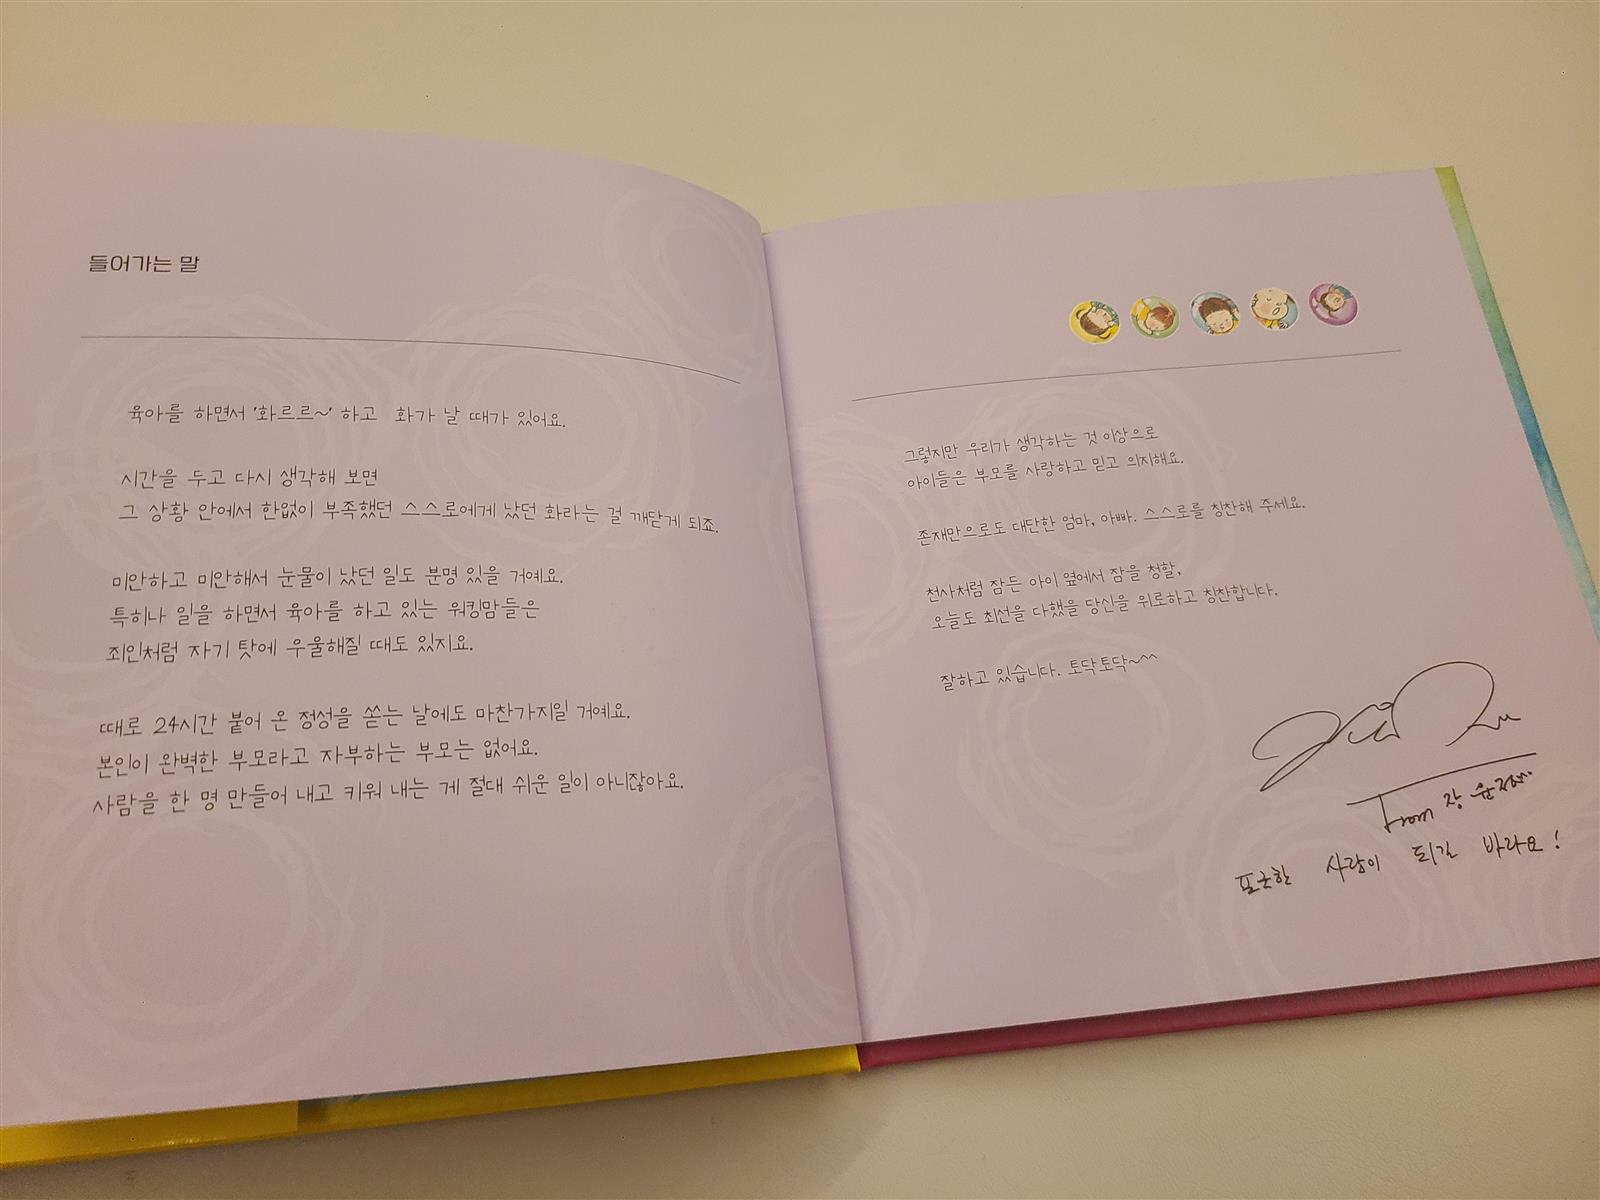 들어가는 말
육아를 하면서 '화르르~' 하고 화가 날 때가 있어요.
시간을 두고 다시 생각해 보면
그 상황 안에서 한없이 부족했던 스스로에게 났던 화라는 걸 깨닫게 되죠.
미안하고 미안해서 눈물이 났던 일도 분명 있을 거예요.
특히나 일을 하면서 육아를 하고 있는 워킹맘들은
죄인처럼 자기 탓에 우울해질 때도 있지요.
때로 24시간 붙어 온 정성을 쏟는 날에도 마찬가지일 거예요.
본인이 완벽한 부모라고 자부하는 부모는 없어요.
사람을 한 명 만들어 내고 키워 내는 게 절대 쉬운 일이 아니잖아요.
그렇지만 우리가 생각하는 것 이상으로
아이들은 부모를 사랑하고 믿고 의지해요.
존재만으로도 대단한 엄마, 아빠. 스스로를 칭찬해 주세요.
천사처럼 잠든 아이 옆에서 잠을 청할,
오늘도 최선을 다했을 당신을 위로하고 칭찬합니다.
잘하고 있습니다. 토닥토닥~^^
From 장
포근한 사랑이 되길 바라요!